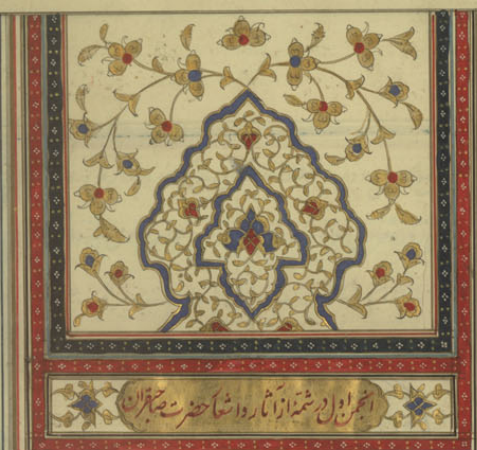 انجمن اول در شمهٔ از آثار و اشعار حضرت صاحبقران